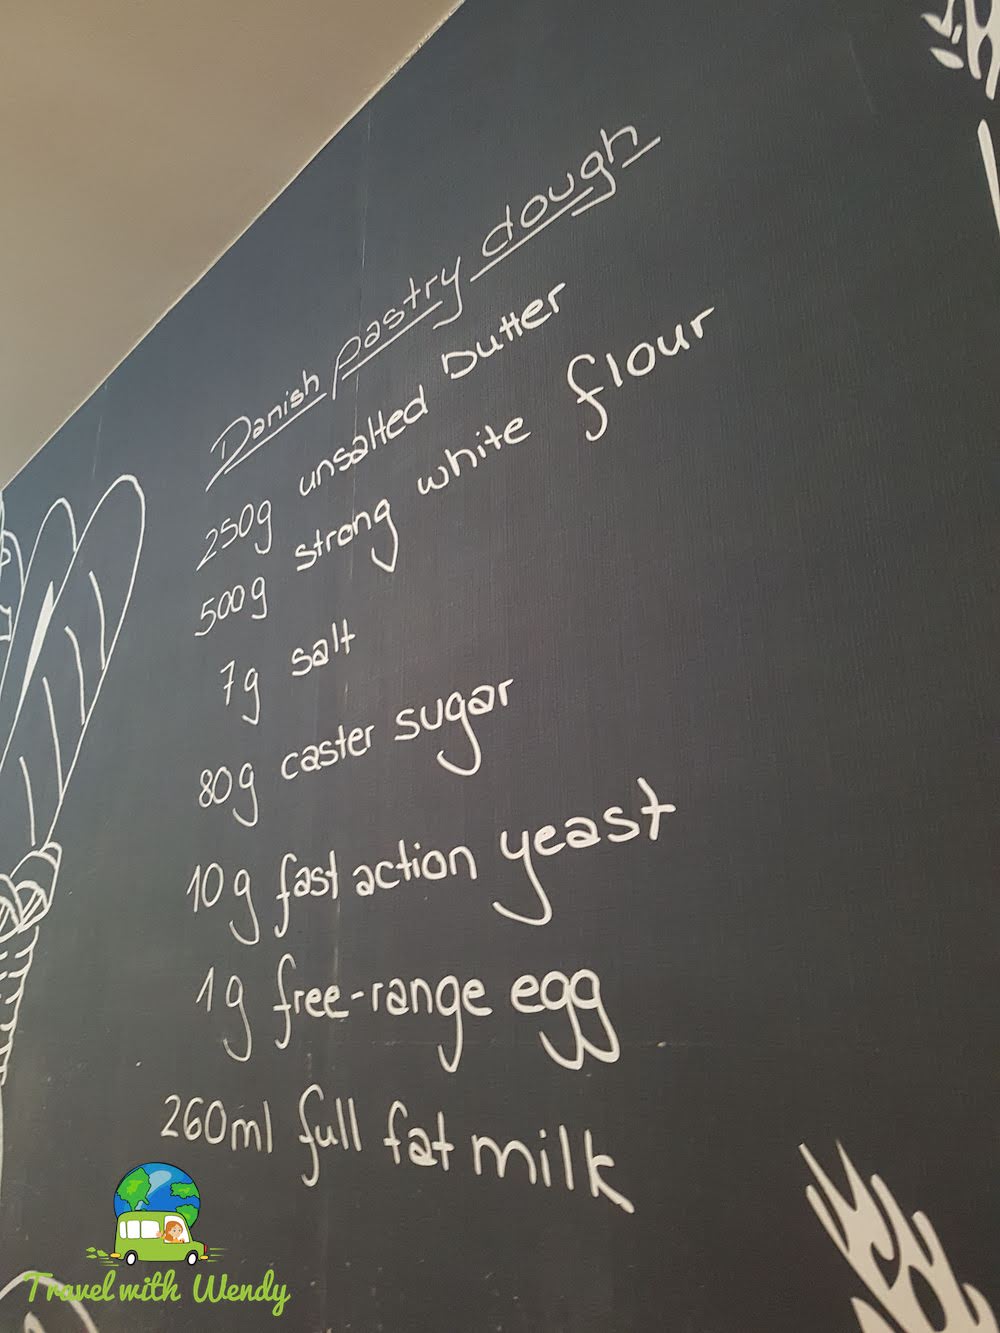 Danish pastry dough
250g unsalted butter
500g strong white flour
7g salt
80g caster sugar
10g fast action yeast
1g free-range egg
260ml full fat milk
Travel with Wendy